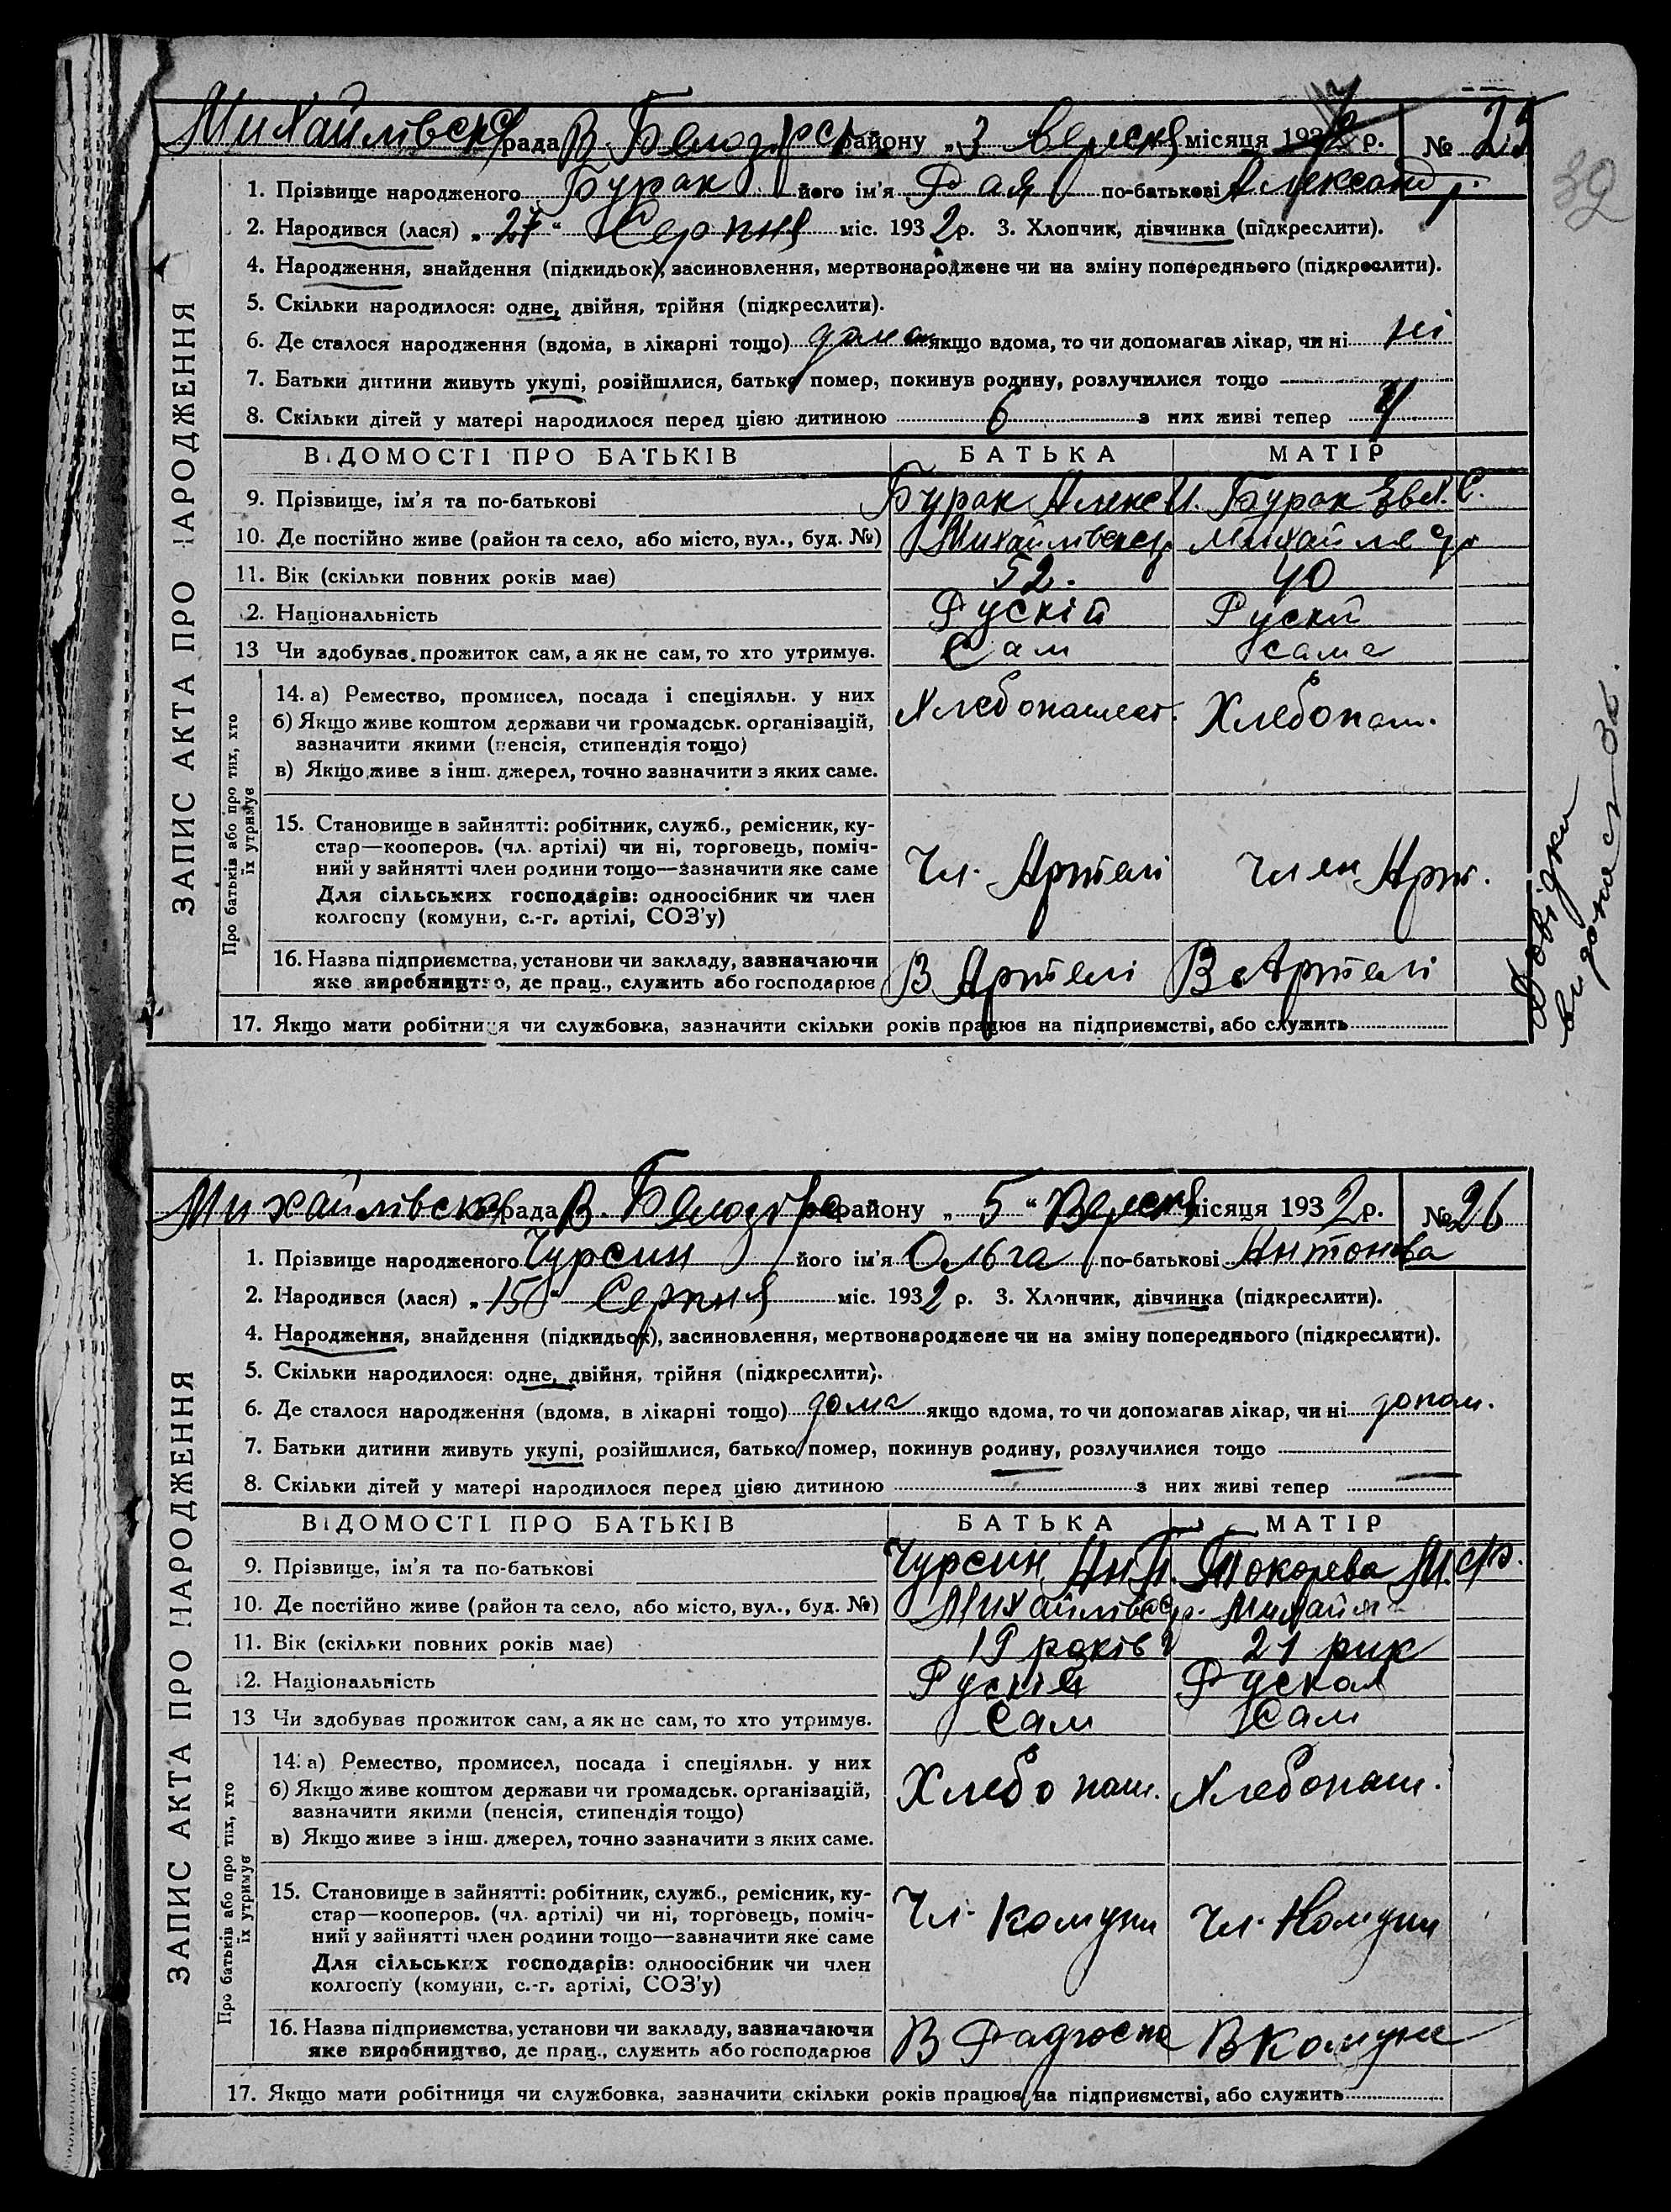 Михайлівська рада В Белозерс району „3 Вересня місяця 193 р. № 25
39
1. Прізвище народженого Бурак його ім'я Рая по-батькові Александр.
2. Народився (лася) „27“ Серпня міс. 1932 р. 3. Хлопчик, дівчинка (підкреслити).
4. Народження, знайдення (підкидьок), засиновлення, мертвонароджене чи на зміну попереднього (підкреслити).
5. Скільки народилося: одне, двійня, трійня (підкреслити).
6. Де сталося народження (вдома, в лікарні тощо) дома якщо вдома, то чи допомагав лікар, чи ні ні
7. Батьки дитини живуть укупі, розійшлися, батько помер, покинув родину, розлучилися тощо
8. Скільки дітей у матері народилося перед цією дитиною 6 з них живі тепер 4
ЗАПИС АКТА ПРО НАРОДЖЕННЯ
ВІДОМОСТІ ПРО БАТЬКІВ БАТЬКА МАТІР
9. Прізвище, ім'я та по-батькові Бурак Алекс И. Бурак Евд. С.
10. Де постійно живе (район та село, або місто, вул., буд. №) Михайлівс
11. Вік (скільки повних років має) 52. 40
12. Національність Рускій Рускй
13 Чи здобуває прожиток сам, а як не сам, то хто утримує. Сам сама
Про батьків або про тих, хто
їх утримує
14. а) Ремество, промисел, посада і спеціяльн. у них
б) Якщо живе коштом держави чи громадськ. організацій,
зазначити якими (пенсія, стипендія тощо)
в) Якщо живе з інш. джерел, точно зазначити з яких саме.
Хлебопашест. Хлебопаш.
15. Становище в зайнятті: робітник, служб., ремісник, ку-
стар—кооперов. (чл. артілі) чи ні, торговець, поміч-
ний у зайнятті член родини тощо—зазначити яке саме
Для сільських господарів: одноосібник чи член
колгоспу (комуни, с.-г. артілі, СОЗ'у)
Чл. Артелі Член Арт.
16. Назва підприємства, установи чи закладу, зазначаючи
яке виробництво, де прац., служить або господарює
В Артелі В Артелі
17. Якщо мати робітниця чи службовка, зазначити скільки років працює на підприємстві, або служить
Довідки
видонаст 36.
Михайлівська рада В. Белозерс району „5“ Вересня місяця 1932 р. № 26
1. Прізвище народженого Чурсин його ім'я Ольга по-батькові Антонова
2. Народився (лася) „15“ Серпня міс. 1932 р. 3. Хлопчик, дівчинка (підкреслити).
4. Народження, знайдення (підкидьок), засиновлення, мертвонароджене чи на зміну попереднього (підкреслити).
5. Скільки народилося: одне, двійня, трійня (підкреслити).
6. Де сталося народження (вдома, в лікарні тощо) дома якщо вдома, то чи допомагав лікар, чи ні допом.
7. Батьки дитини живуть укупі, розійшлися, батько помер, покинув родину, розлучилися тощо
8. Скільки дітей у матері народилося перед цією дитиною — з них живі тепер —
ЗАПИС АКТА ПРО НАРОДЖЕННЯ
ВІДОМОСТІ ПРО БАТЬКІВ БАТЬКА МАТІР
9. Прізвище, ім'я та по-батькові Чурсин Ан. П. Токорева М. Ф.
10. Де постійно живе (район та село, або місто, вул., буд. №) Михайлівс Михайл
11. Вік (скільки повних років має) 19 років 21 рик
12. Національність Рускій Руская
13 Чи здобуває прожиток сам, а як не сам, то хто утримує. Сам Сам
Про батьків або про тих, хто
їх утримує
14. а) Ремество, промисел, посада і спеціяльн. у них
б) Якщо живе коштом держави чи громадськ. організацій,
зазначити якими (пенсія, стипендія тощо)
в) Якщо живе з інш. джерел, точно зазначити з яких саме.
Хлебопаш. Хлебопаш.
15. Становище в зайнятті: робітник, служб., ремісник, ку-
стар—кооперов. (чл. артілі) чи ні, торговець, поміч-
ний у зайнятті член родини тощо—зазначити яке саме
Для сільських господарів: одноосібник чи член
колгоспу (комуни, с.-г. артілі, СОЗ'у)
Чл. Комуни Чл. Комуни
16. Назва підприємства, установи чи закладу, зазначаючи
яке виробництво, де прац., служить або господарює
В Радгоспе В Комуне
17. Якщо мати робітниця чи службовка, зазначити скільки років працює на підприємстві, або служить